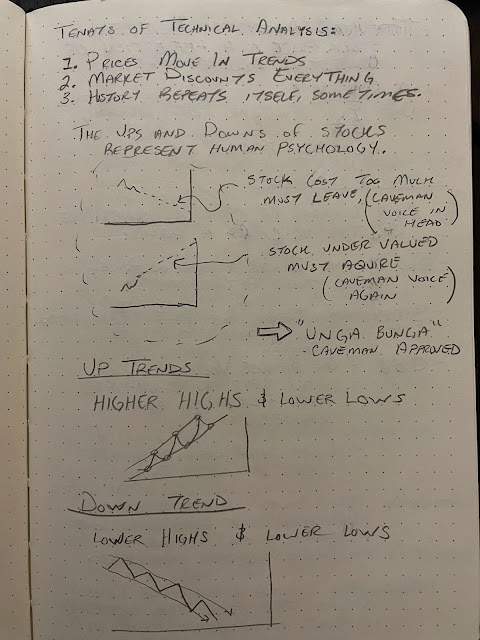 TENATS OF TECHNICAL ANALYSIS:
1. PRICES MOVE IN TRENDS
2. MARKET DISCOUNTS EVERYTHING
3. HISTORY REPEATS ITSELF, SOMETIMES.
THE UPS AND DOWNS OF STOCKS
REPRESENT HUMAN PSYCHOLOGY.
STOCK COST TOO MUCH
MUST LEAVE, (CAVEMAN
VOICE IN
HEAD)
STOCK UNDER VALUED
MUST AQUIRE
(CAVEMAN VOICE
AGAIN)
"UNGA BUNGA"
- CAVEMAN APPROVED
UP TRENDS
HIGHER HIGHS & LOWER LOWS
DOWN TREND
LOWER HIGHS & LOWER LOWS